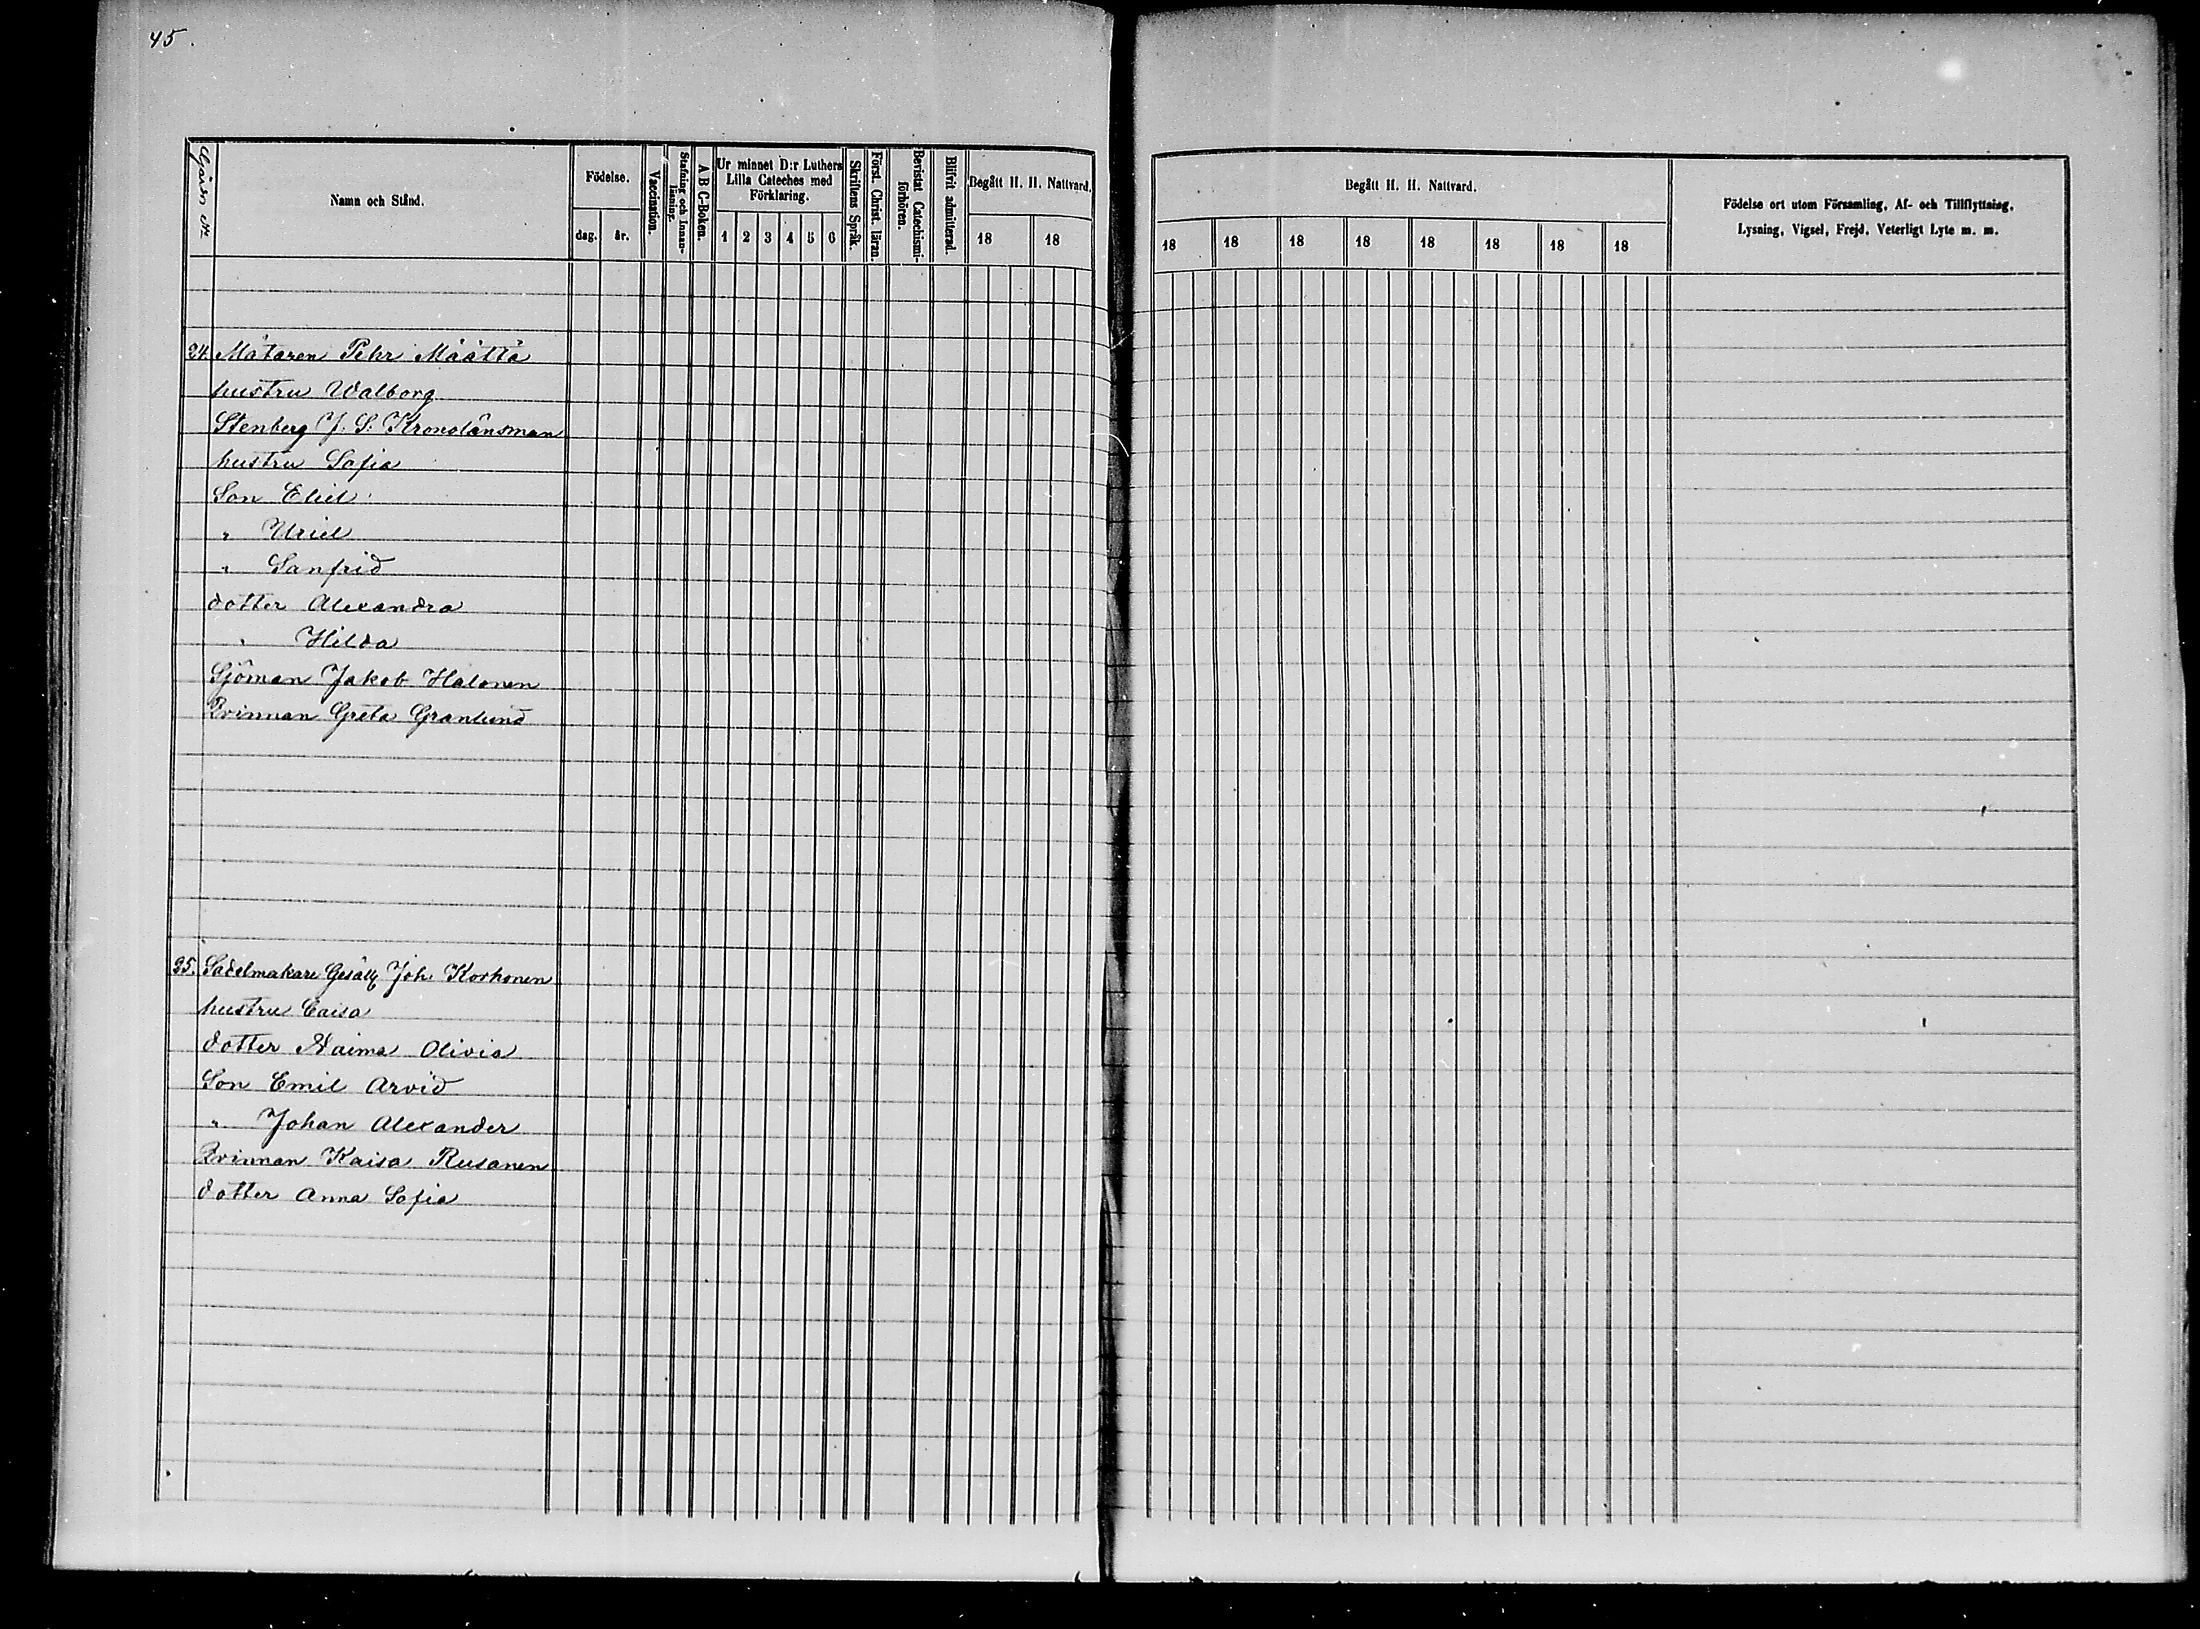 45.
Gården №
Namn och Stånd.
Födelse.
dag.
år.
Vaccination.
Stafning och Innan-läsning.
A B C-Boken.
Ur minnet D:r Luthers
Lilla Cateches med
Förklaring.
1 2 3 4 5 6
Skriftens Språk.
Först. Christ. läran.
Bevistat Catechismi-förhören.
Blifvit admitterad.
Begått H. H. Nattvard.
18 18
Begått H. H. Nattvard.
18 18 18 18 18 18 18 18
Födelse ort utom Församling, Af- och Tillflyttning,
Lysning, Vigsel, Frejd, Veterligt Lyte m. m.
34. Mätaren Pehr Määttä
hustru Walborg
Stenberg J. S. Kronolänsman
hustru Sofia
Son Eliel
" Uriel
" Sanfrid
dotter Alexandra
" Hilda
Sjöman Jakob Halonen
Qvinnan Greta Granlund
35. Sadelmakare Gesäll Joh. Korhonen
hustru Caisa
dotter Naima Olivia
Son Emil Arvid
" Johan Alexander
Qvinnan Kaisa Rusanen
dotter Anna Sofia